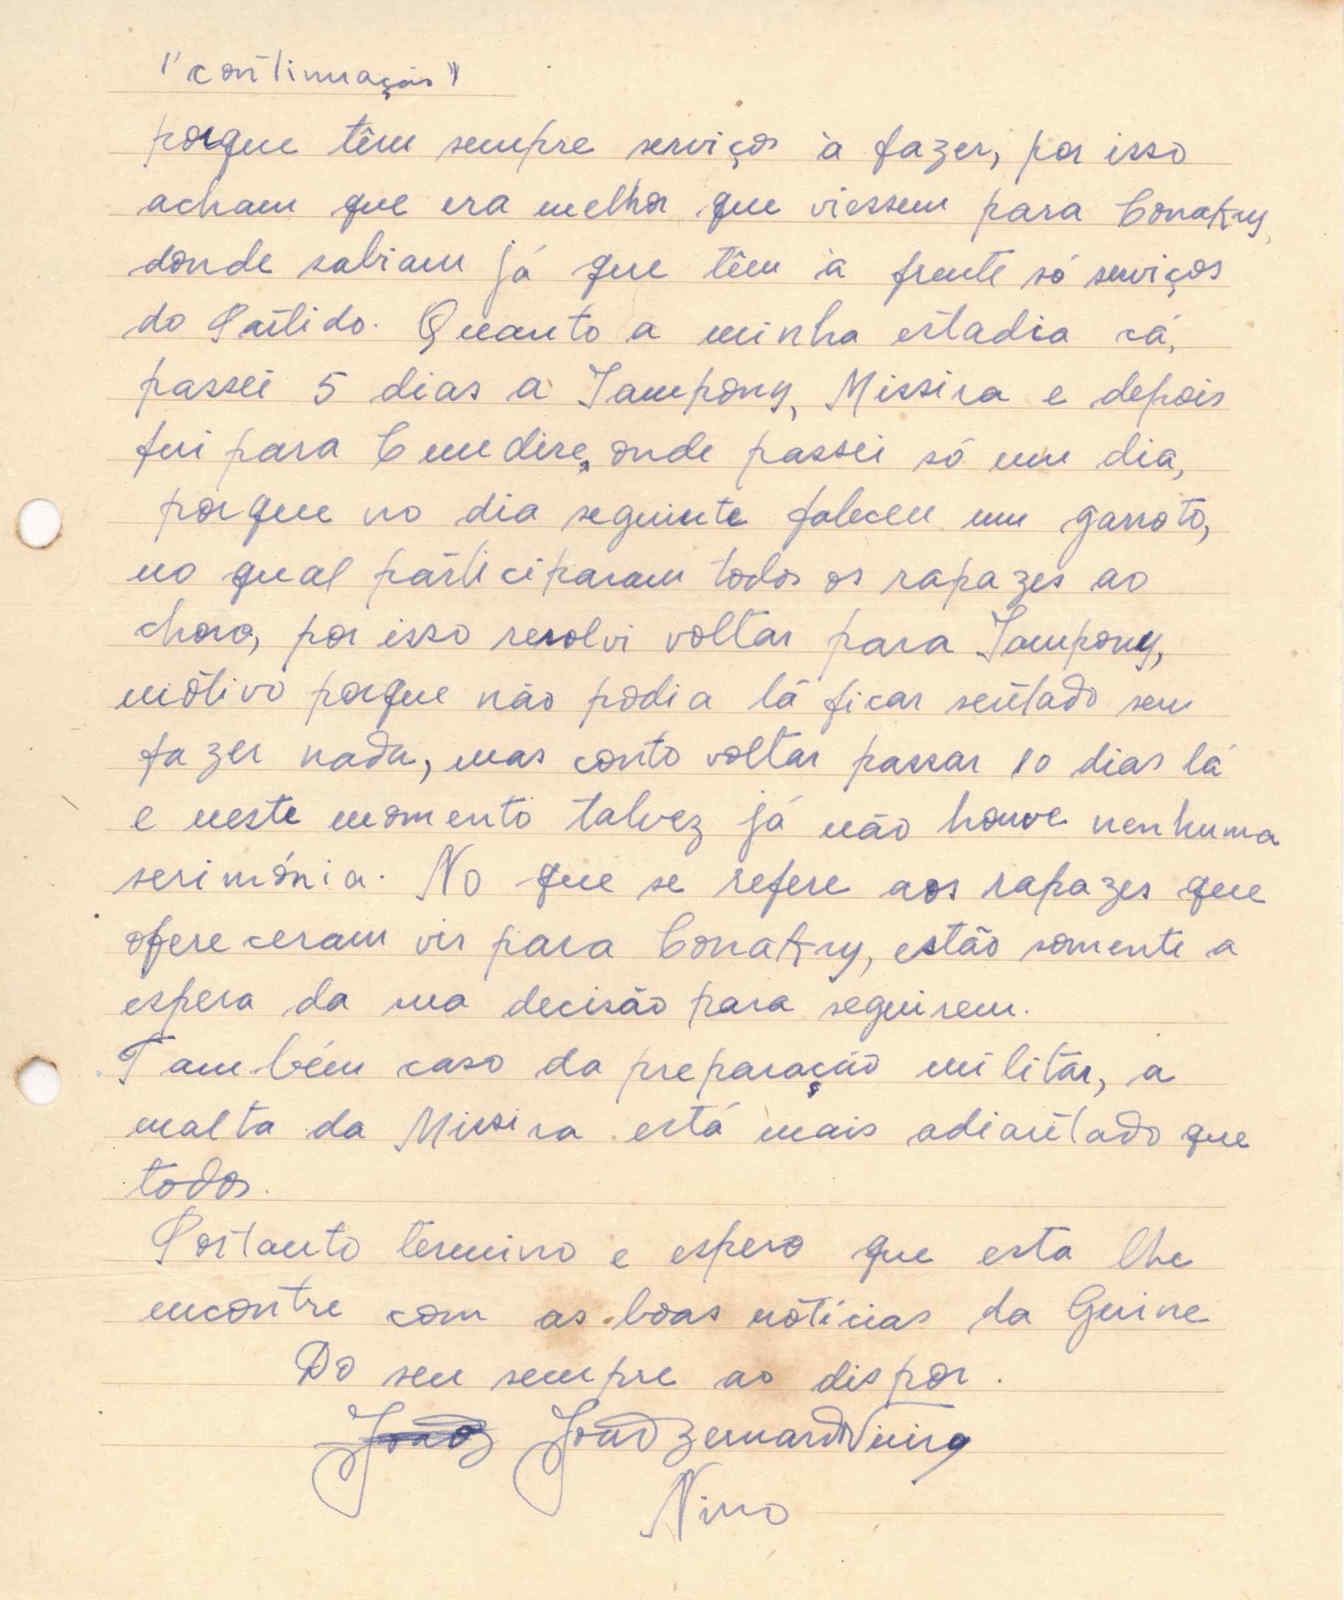 "continuação"
porque têm sempre serviços à fazer, por isso
acham que era melhor que viessem para Conakry,
donde sabiam já que têm à frente só serviços
do Partido. Quanto a minha estadia cá,
passei 5 dias a Tampony, Missira e depois
fui para onde passei só um dia,
porque no dia seguinte faleceu um garroto,
no qual participaram todos os rapazes ao
choro, por isso resolvi voltar para Tampony,
mótivo porque não podia lá ficar sentado sem
fazer nada, mas conto voltar passar 10 dias lá
e neste momento talvez já não houve nenhuma
serimónia. No que se refere aos rapazes que
ofereceram vir para Conakry, estão somente a
espera da sua decisão para seguirem.
Também caso da preparação militar, a
malta da Missira está mais adiantado que
todos.
Portanto termino e espero que esta lhe
encontre com as boas nóticias da Guine
Do seu sempre ao dispor.
João João Bernardo Vieira
Nino